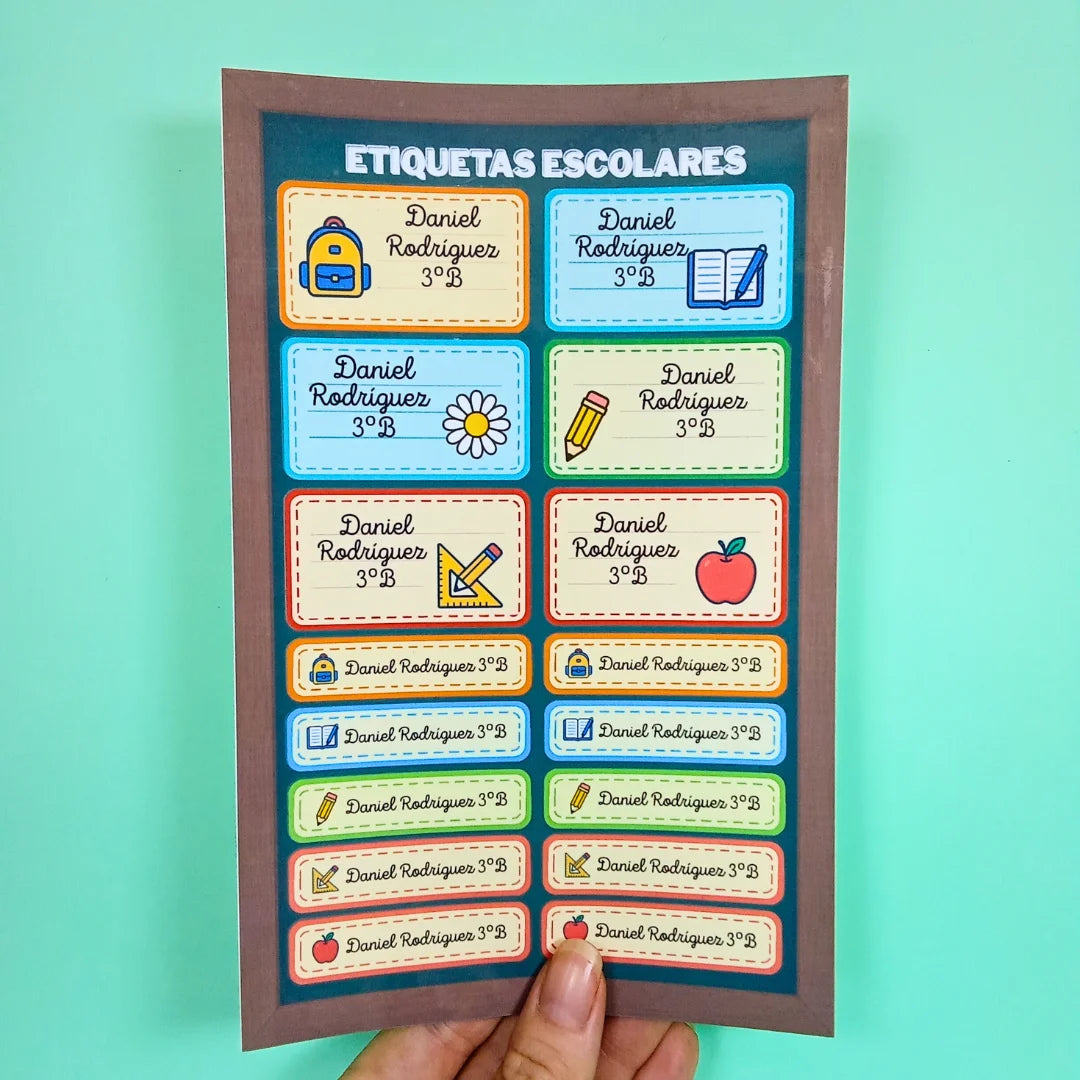 ETIQUETAS ESCOLARES
Daniel
Rodríguez
3ºB
Daniel
Rodríguez
3ºB
Daniel
Rodríguez
3ºB
Daniel
Rodríguez
3ºB
Daniel
Rodríguez
3ºB
Daniel
Rodríguez
3ºB
Daniel Rodríguez 3ºB
Daniel Rodríguez 3ºB
Daniel Rodríguez 3ºB
Daniel Rodríguez 3ºB
Daniel Rodríguez 3ºB
Daniel Rodríguez 3ºB
Daniel Rodríguez 3ºB
Daniel Rodríguez 3ºB
Daniel Rodríguez 3ºB
Daniel Rodríguez 3ºB